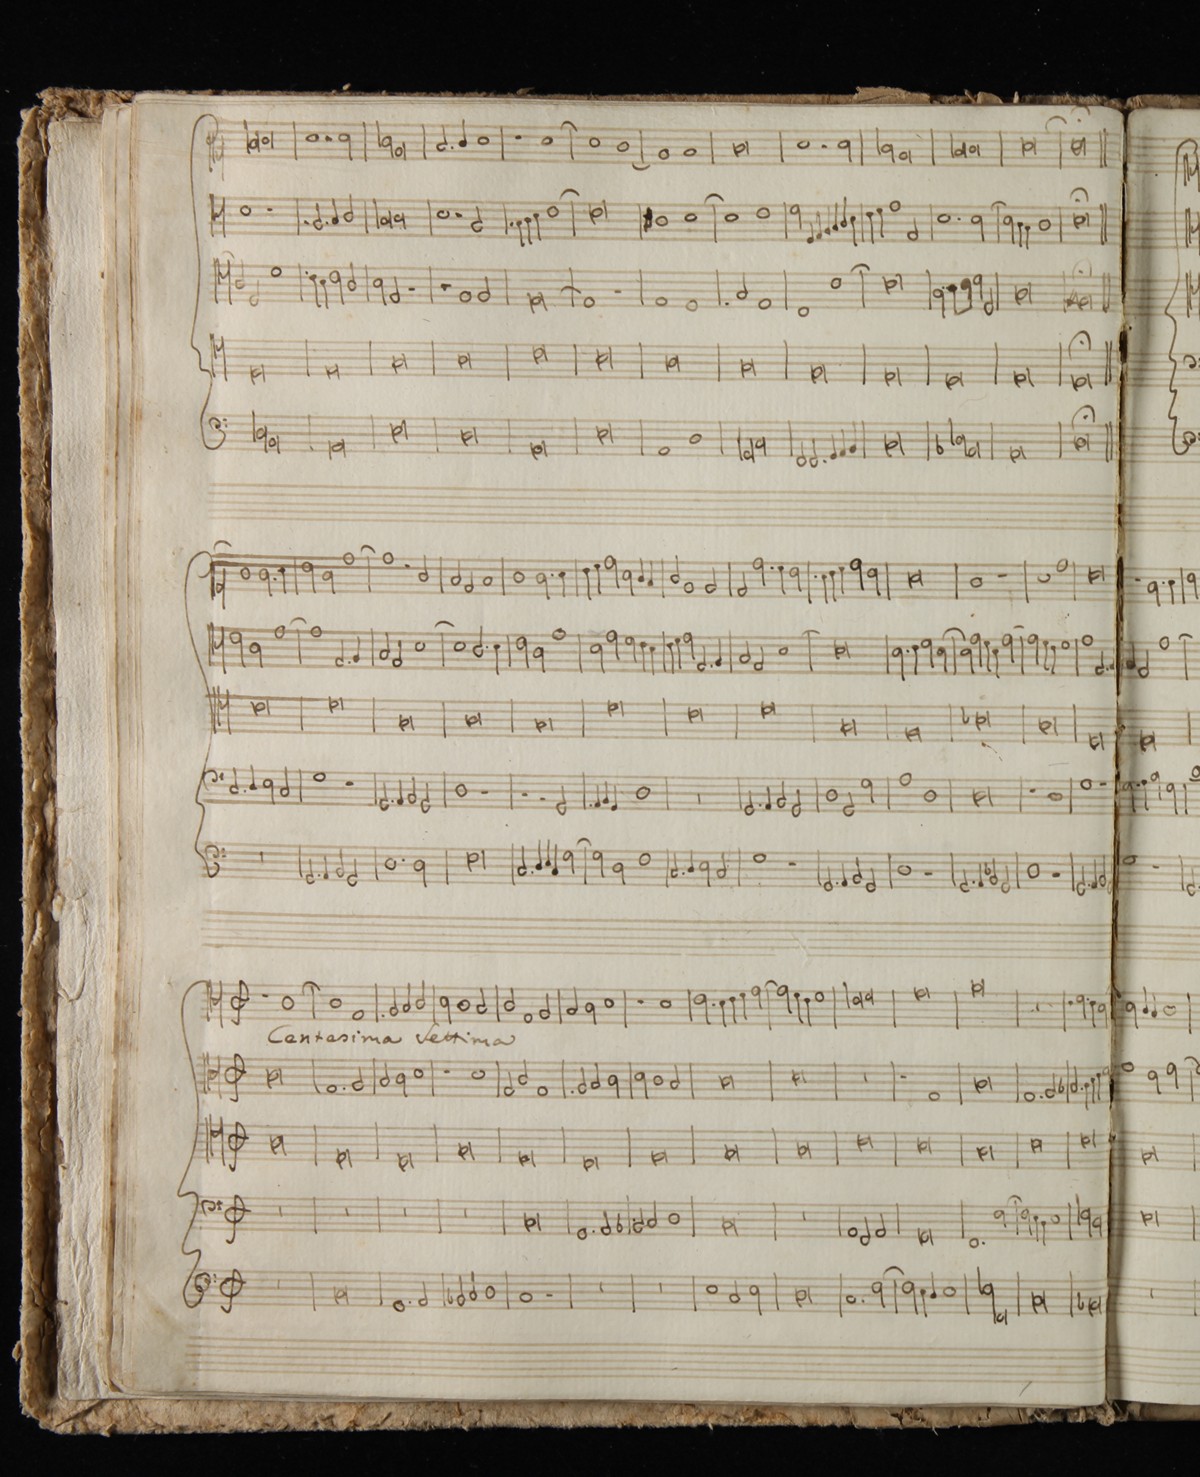 Centesima Settima